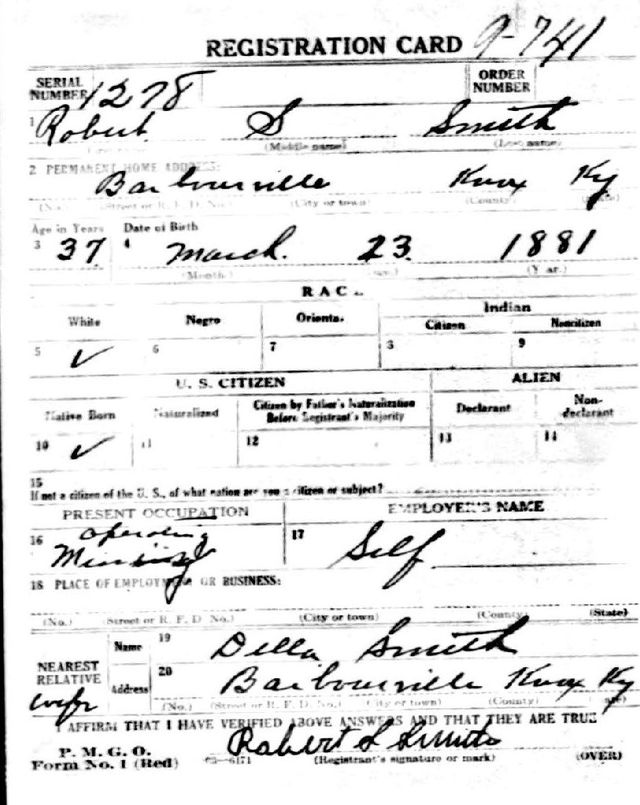 REGISTRATION CARD 9-741
SERIAL NUMBER 1278 ORDER NUMBER
1 Robert S Smith
(Middle name) (Last name)
2 PERMANENT HOME ADDRESS:
Barbourville Knox Ky
(No.) (Street or R. F. D. No.) (City or town) (County) (State)
Age in Years Date of Birth
3 37 4 March 23 1881
(Month.) (Day.) (Year.)
RACE
White Negro Oriental Indian
Citizen Noncitizen
5 ✓ 6 7 8 9
U. S. CITIZEN ALIEN
Native Born Naturalized Citizen by Father's Naturalization Before Registrant's Majority Declarant Non-declarant
10 ✓ 11 12 13 14
15
If not a citizen of the U. S., of what nation are you a citizen or subject?
PRESENT OCCUPATION EMPLOYER'S NAME
16 Operating Mining 17 Self
18 PLACE OF EMPLOYMENT OR BUSINESS:
(No.) (Street or R. F. D. No.) (City or town) (County) (State)
NEAREST RELATIVE Name 19 Della Smith
wife Address 20 Barbourville Knox Ky
(No.) (Street or R. F. D. No.) (City or town) (County) (State)
I AFFIRM THAT I HAVE VERIFIED ABOVE ANSWERS AND THAT THEY ARE TRUE
P. M. G. O.
Form No. 1 (Red) 03-6171 Robert S Smith
(Registrant's signature or mark) (OVER)